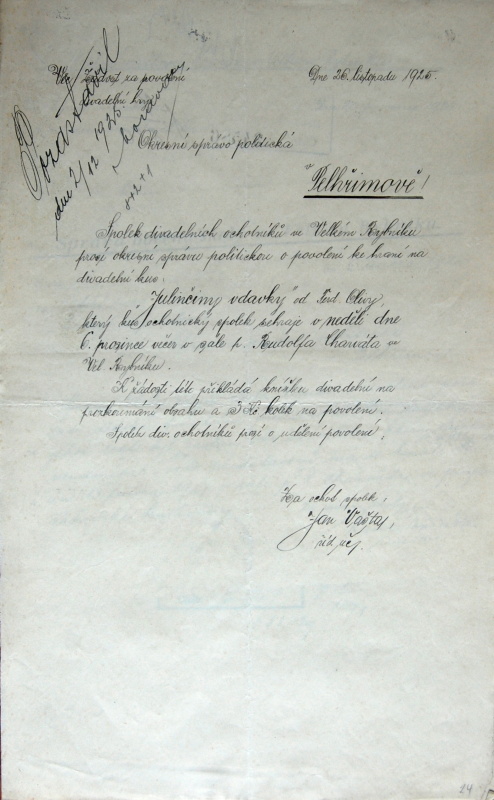 Věc: Žádost za povolení
divadelní hry.
Dne 26. listopadu 1925.
dne 2/12 1925.
8+2+1
Okresní správo politická
v Pelhřimově!
Spolek divadelních ochotníků ve Velkém Rybníku
prosí okresní správu politickou o povolení ke hraní na
divadelní kus:
"Julinčiny vdavky" od Ferd. Olivy,
který kus ochotnický spolek sehraje v neděli dne
6. prosince večer v sále p. Rudolfa Charváta ve
Vel. Rybníku.
K žádosti této překládá knížku divadelní na
prozkoumání obsahu a 3 Kč kolek na povolení.
Spolek div. ochotníků prosí o udělení povolení.
Za ochot. spolek:
Jan
říd. uč.
24